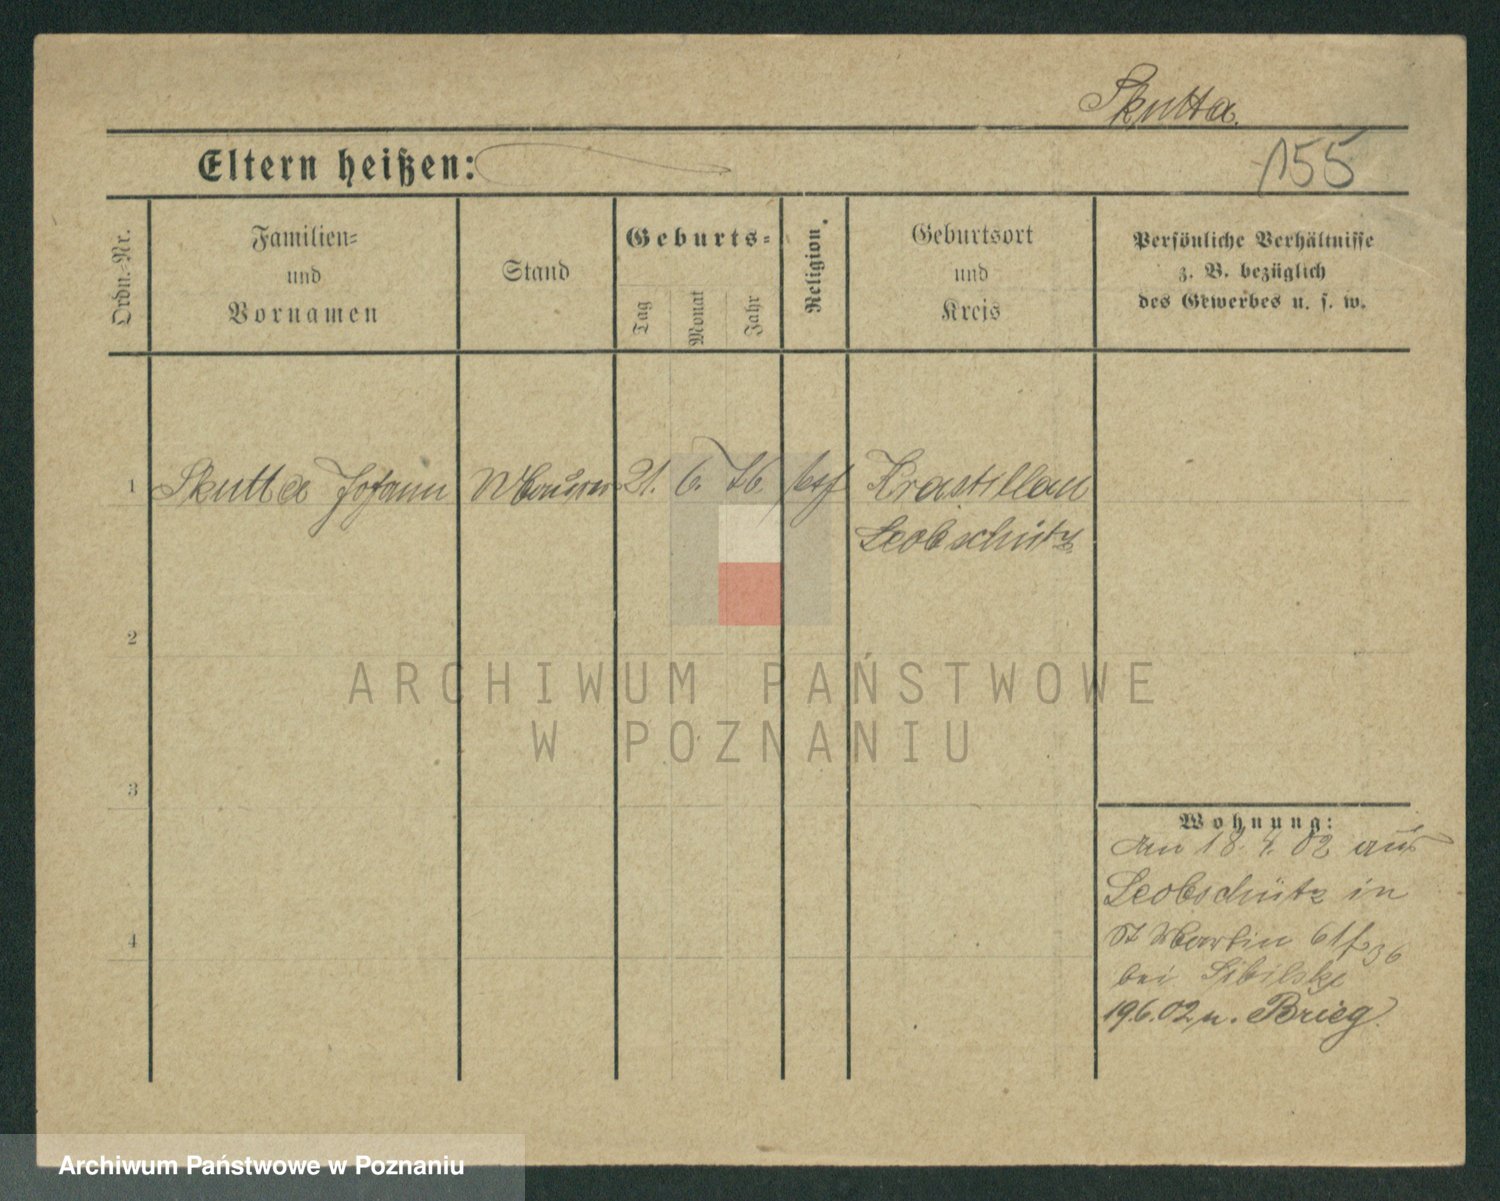 Skutta.
Eltern heißen:
155
Ordn.-Nr.
Familien-
und
Vornamen
Stand
Geburts-
Tag
Monat
Jahr
Religion.
Geburtsort
und
Kreis
Persönliche Verhältnisse
z. B. bezüglich
des Gewerbes u. s. w.
1 Skutta Johann Maurer 21. 6. 76. Krastillau
Leobschütz
2
ARCHIWUM PAŃSTWOWE
W POZNANIU
3
Wohnung:
Am 18. 4. 02 aus
Leobschütz in
St Martin 61
4
bei
19.6.02 n. Brieg.
Archiwum Państwowe w Poznaniu